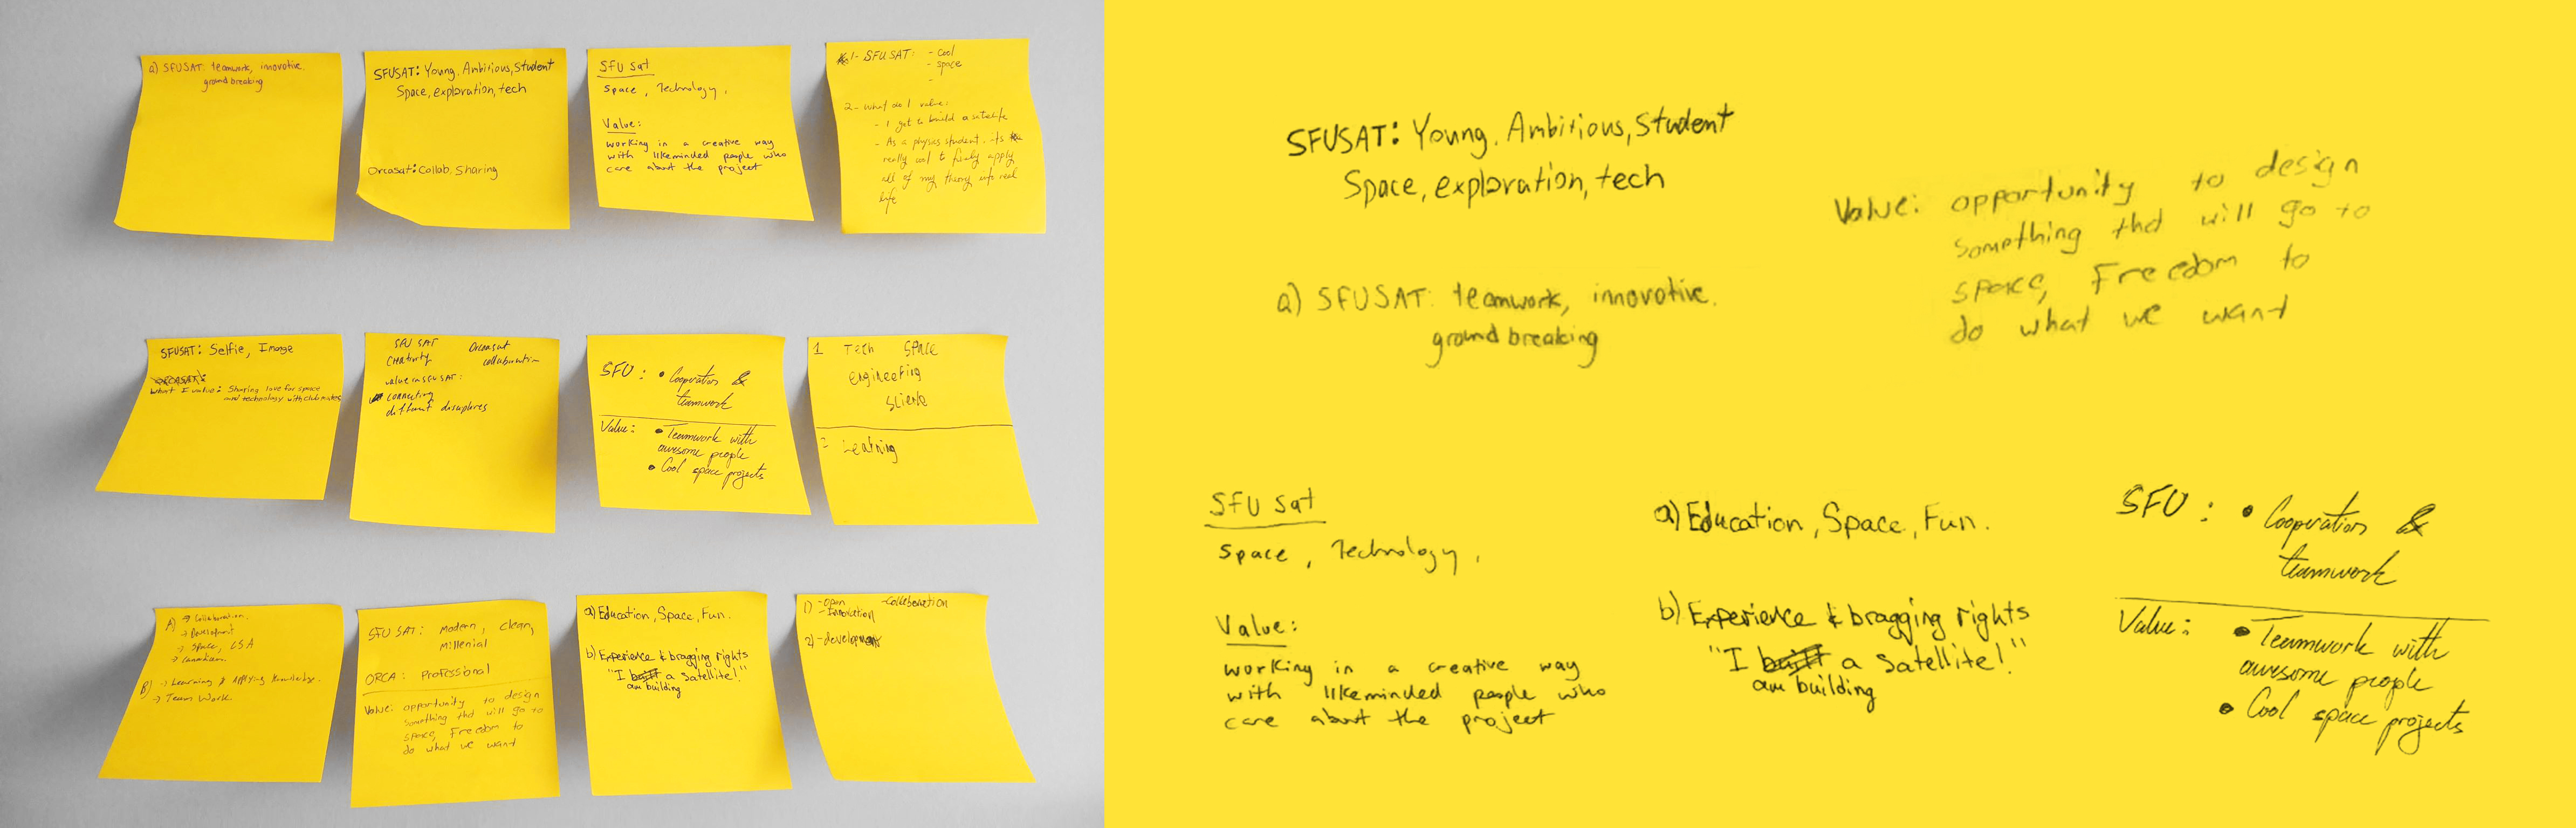 a) SFUSAT: teamwork, innovative.
ground breaking
SFUSAT: Young, Ambitious, Student
Space, exploration, tech
Orcasat: Collab, Sharing
SFU Sat
Space, Technology,
Value:
working in a creative way
with likeminded people who
care about the project
1- SFUSAT: - cool
- space
-
2- What do I value:
- I get to build a satellite
- As a physics student, its
really cool to finally apply
all of my theory into real
life
SFUSAT: Selfie, Image
ORCASAT:
What I value: Sharing love for space
and technology with club mates
SFU SAT
Creativity
Orcasat
collaboration
value in SFUSAT:
connecting
different disciplines
SFU: • Cooperation &
teamwork
Value: • Teamwork with
awesome people
• Cool space projects
1 Tech Space
Engineering
Science
2 Learning
A) → Collaboration.
→ Development
→ Space, CSA
B) → Learning & Applying Knowledge.
→ Team Work.
SFU SAT: Modern, Clean,
Millenial
ORCA: Professional
Value: opportunity to design
something that will go to
space, Freedom to
do what we want
a) Education, Space, Fun.
b) Experience & bragging rights
"I built a satellite!"
am building
1) - Open - Collaboration
- Innovation
2) - development
SFUSAT: Young, Ambitious, Student
Space, exploration, tech
Value: opportunity to design
something that will go to
space, Freedom to
do what we want
a) SFUSAT: teamwork, innovative.
ground breaking
SFU Sat
Space, Technology,
Value:
working in a creative way
with likeminded people who
care about the project
a) Education, Space, Fun.
b) Experience & bragging rights
"I built a satellite!"
am building
SFU: • Cooperation &
teamwork
Value: • Teamwork with
awesome people
• Cool space projects